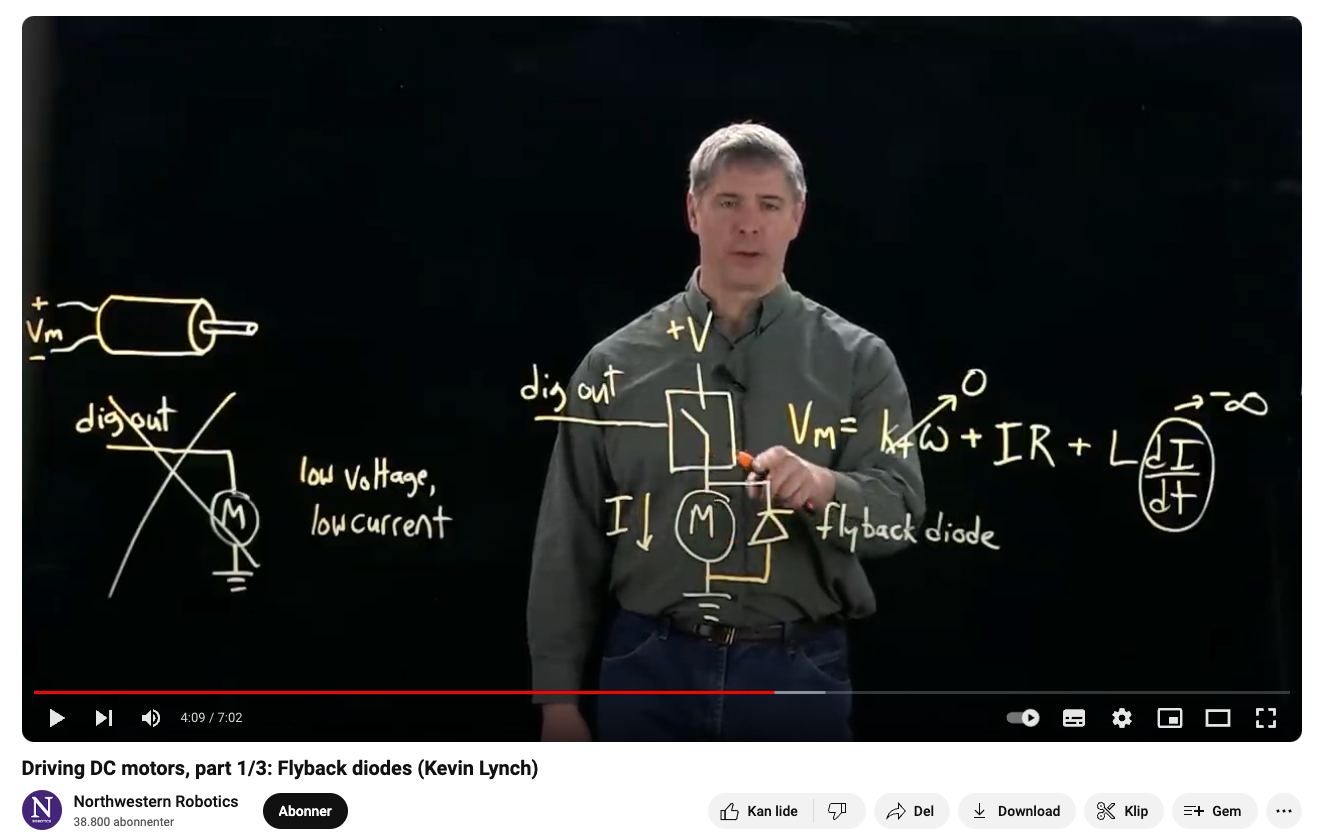 +
Vm
−
dig out
M
low voltage,
low current
+V
dig out
I
M
flyback diode
VM = ktω + IR + L dI/dt
0
→ -∞
4:09 / 7:02
Driving DC motors, part 1/3: Flyback diodes (Kevin Lynch)
N
ROBOTICS
Northwestern Robotics
38.800 abonnenter
Abonner
Kan lide
Del
Download
Klip
Gem